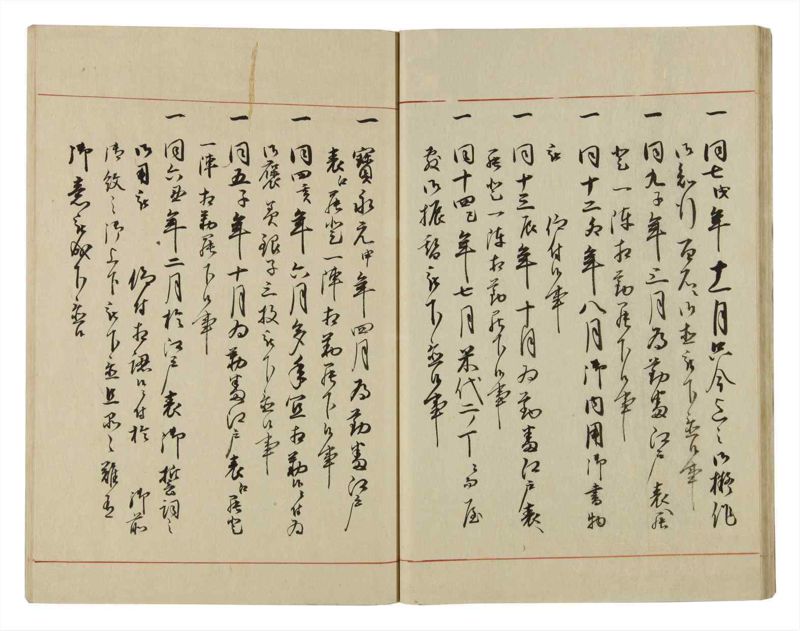 一同七戌年十一月只今迄之御擬作
御知行百石ニ御直被下置候事
一同九子年三月為勤番江戸表罷
登一陣相勤罷下候事
一同十二卯年八月御内用御書物
被仰付候事
一同十三辰年十月為勤番江戸表
罷登一陣相勤罷下候事
一同十四巳年七月米代二ノ丁
御振替被下置候事
一寶永元申年四月為勤番江戸
表江罷登一陣相勤罷下候事
一同四亥年六月多年宜相勤候付為
御褒美銀子三枚被下置候事
一同五子年十月為勤番江戸表江罷登
一陣相勤罷下候事
一同六丑年二月於江戸表御誓詞之
御用被仰付相認候付於御前
御紋之御上下被下置且又難有
御意被成下置候